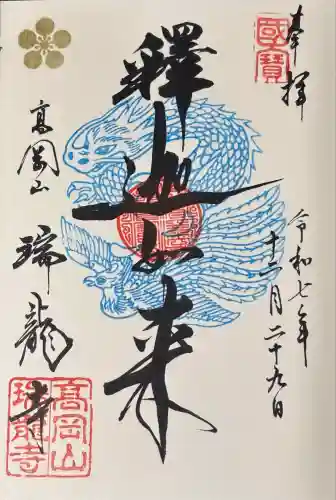 奉拝
國寶
令和七年
十一月二十九日
釋迦如来
高岡山
瑞龍寺
高岡山
瑞龍寺